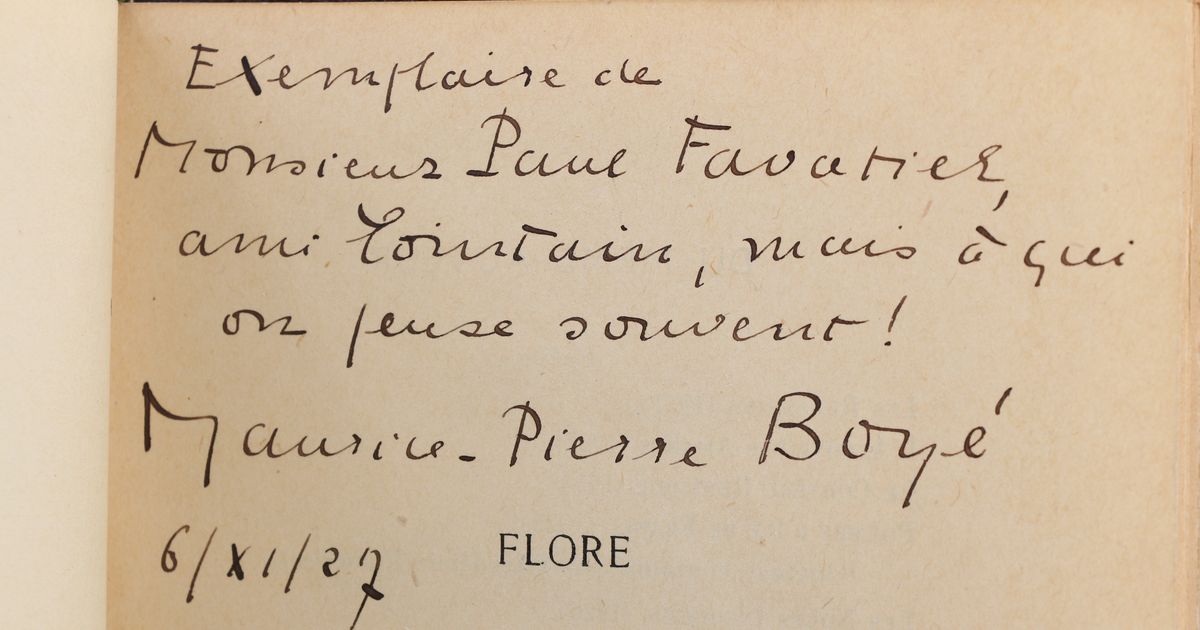 Exemplaire de
Monsieur Paul Favatier,
ami lointain, mais à qui
on pense souvent !
Maurice-Pierre Boyé
6/XI/27
FLORE